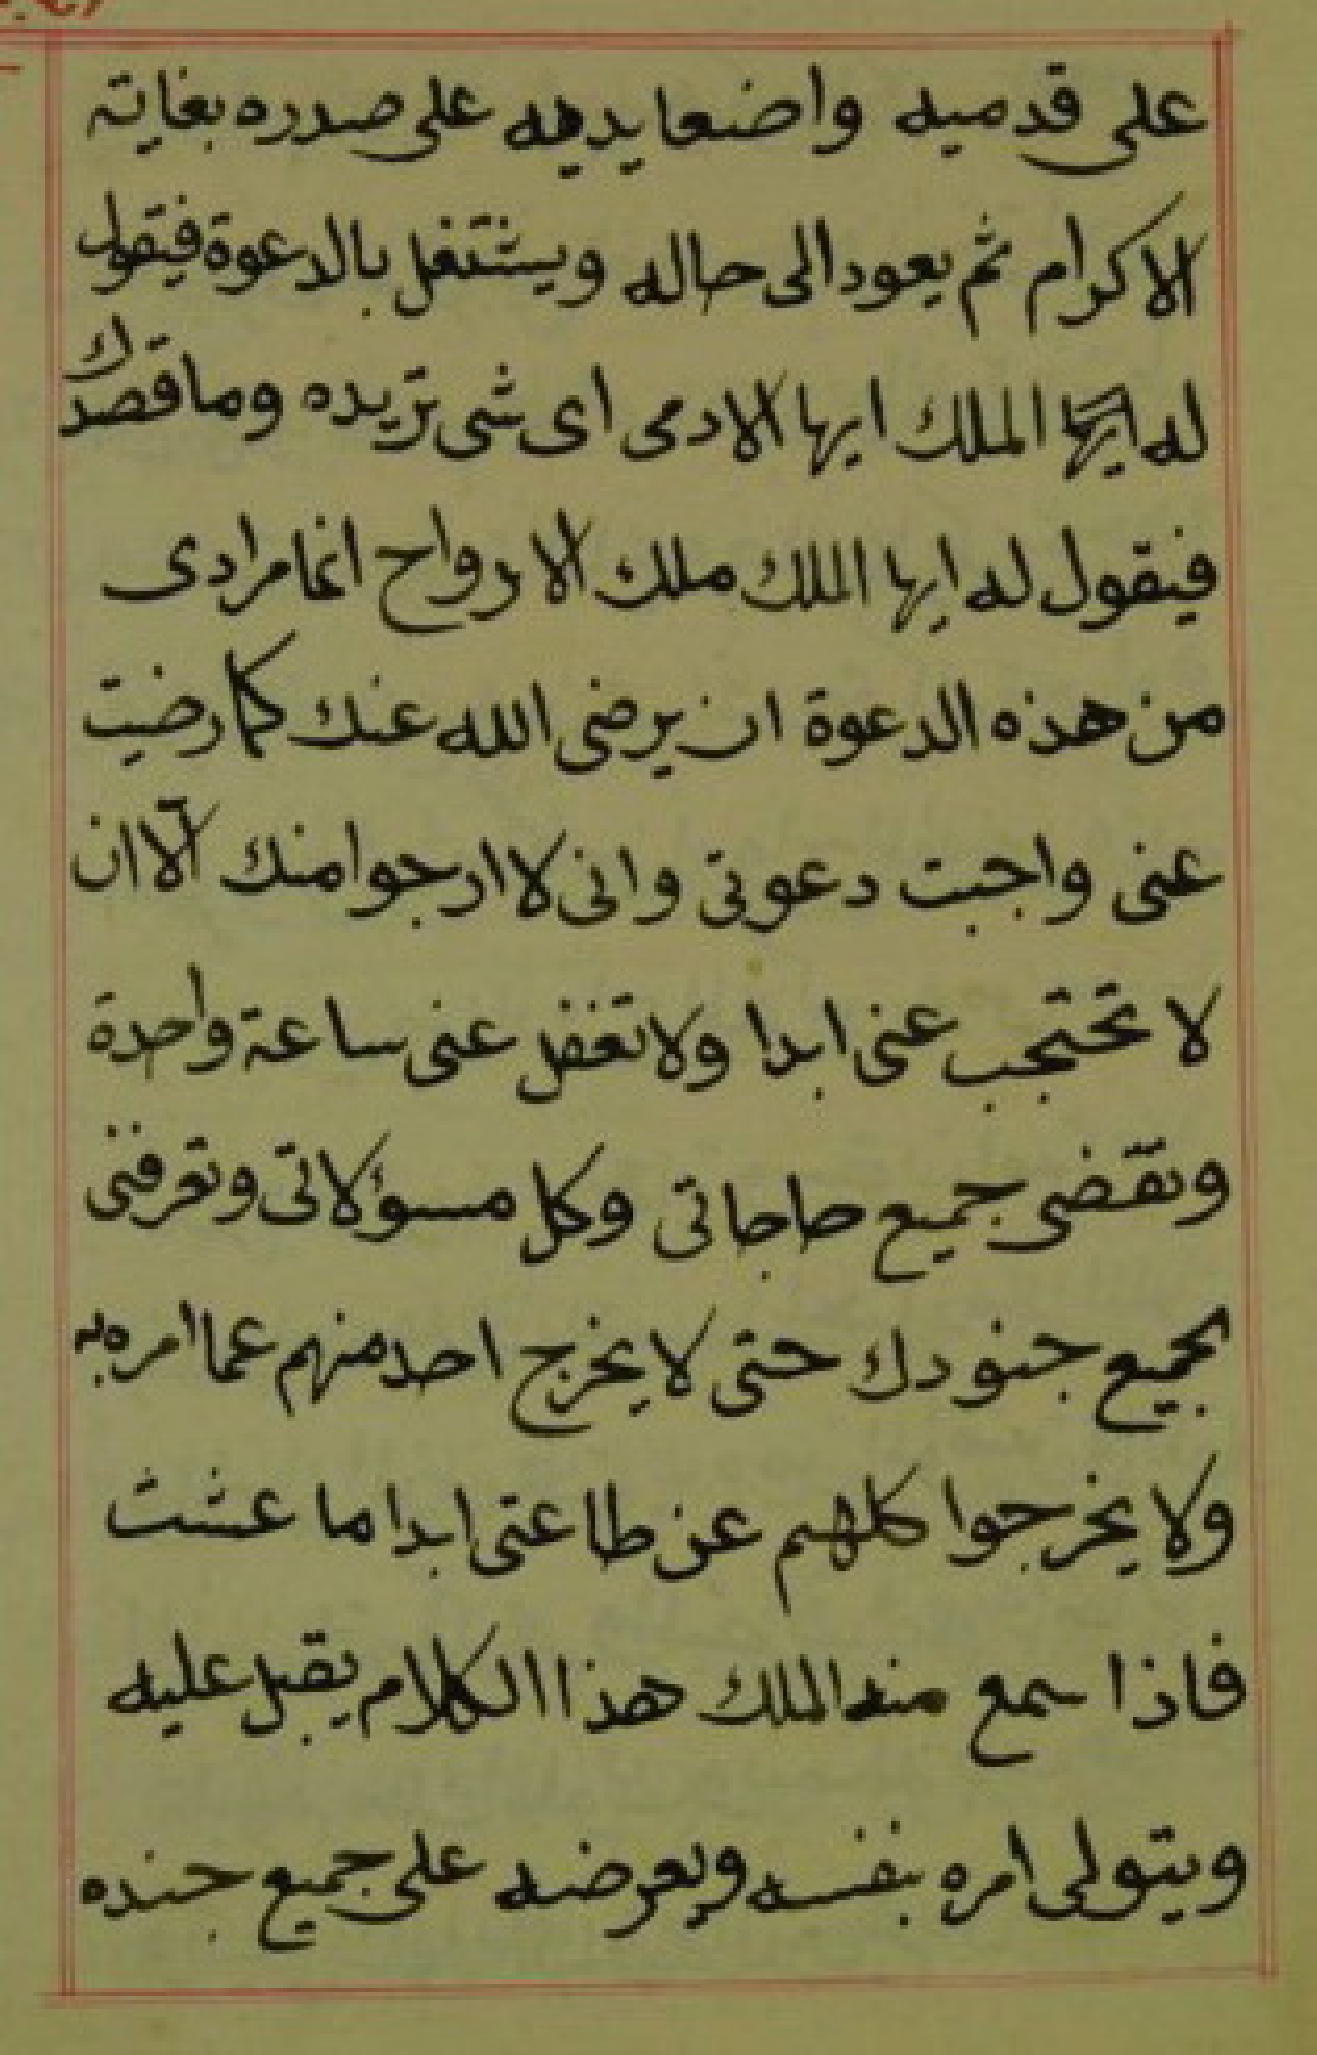 على قدميه واضعا يديه على صدره بغاية
الاكرام ثم يعود الى حاله ويشتغل بالدعوة فيقول
له الملك ايها الادمى اى شى تريده وما قصدك
فيقول له ايها الملك ملك الارواح انما مرادى
من هذه الدعوة ان يرضى الله عنك كما رضيت
عنى واجبت دعوتى وانى لا ارجوا منك الا ان
لا تحتجب عنى ابدا ولا تغفل عنى ساعة واحدة
وتقضى جميع حاجاتى وكل مسؤلاتى وتعرفنى
بجميع جنودك حتى لا يخرج احد منهم عما امره به
ولا يخرجوا كلهم عن طاعتى ابدا ما عشت
فاذا سمع منه الملك هذا الكلام يقبل عليه
ويتولى امره بنفسه ويعرضه على جميع جنده